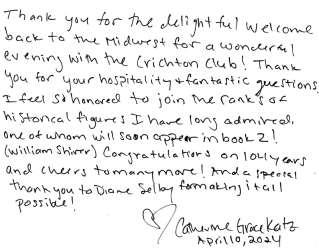 Thank you for the delightful welcome
back to the Midwest for a wonderful
evening with the Crichton Club! Thank
you for your hospitality & fantastic questions.
I feel so honored to join the ranks of
historical figures I have long admired,
one of whom will soon appear in book 2!
(William Shirer) Congratulations on 104 years
and cheers to many more! And a special
thank you to Diane Selby for making it all
possible!
Catherine Grace Katz
April 10, 2024